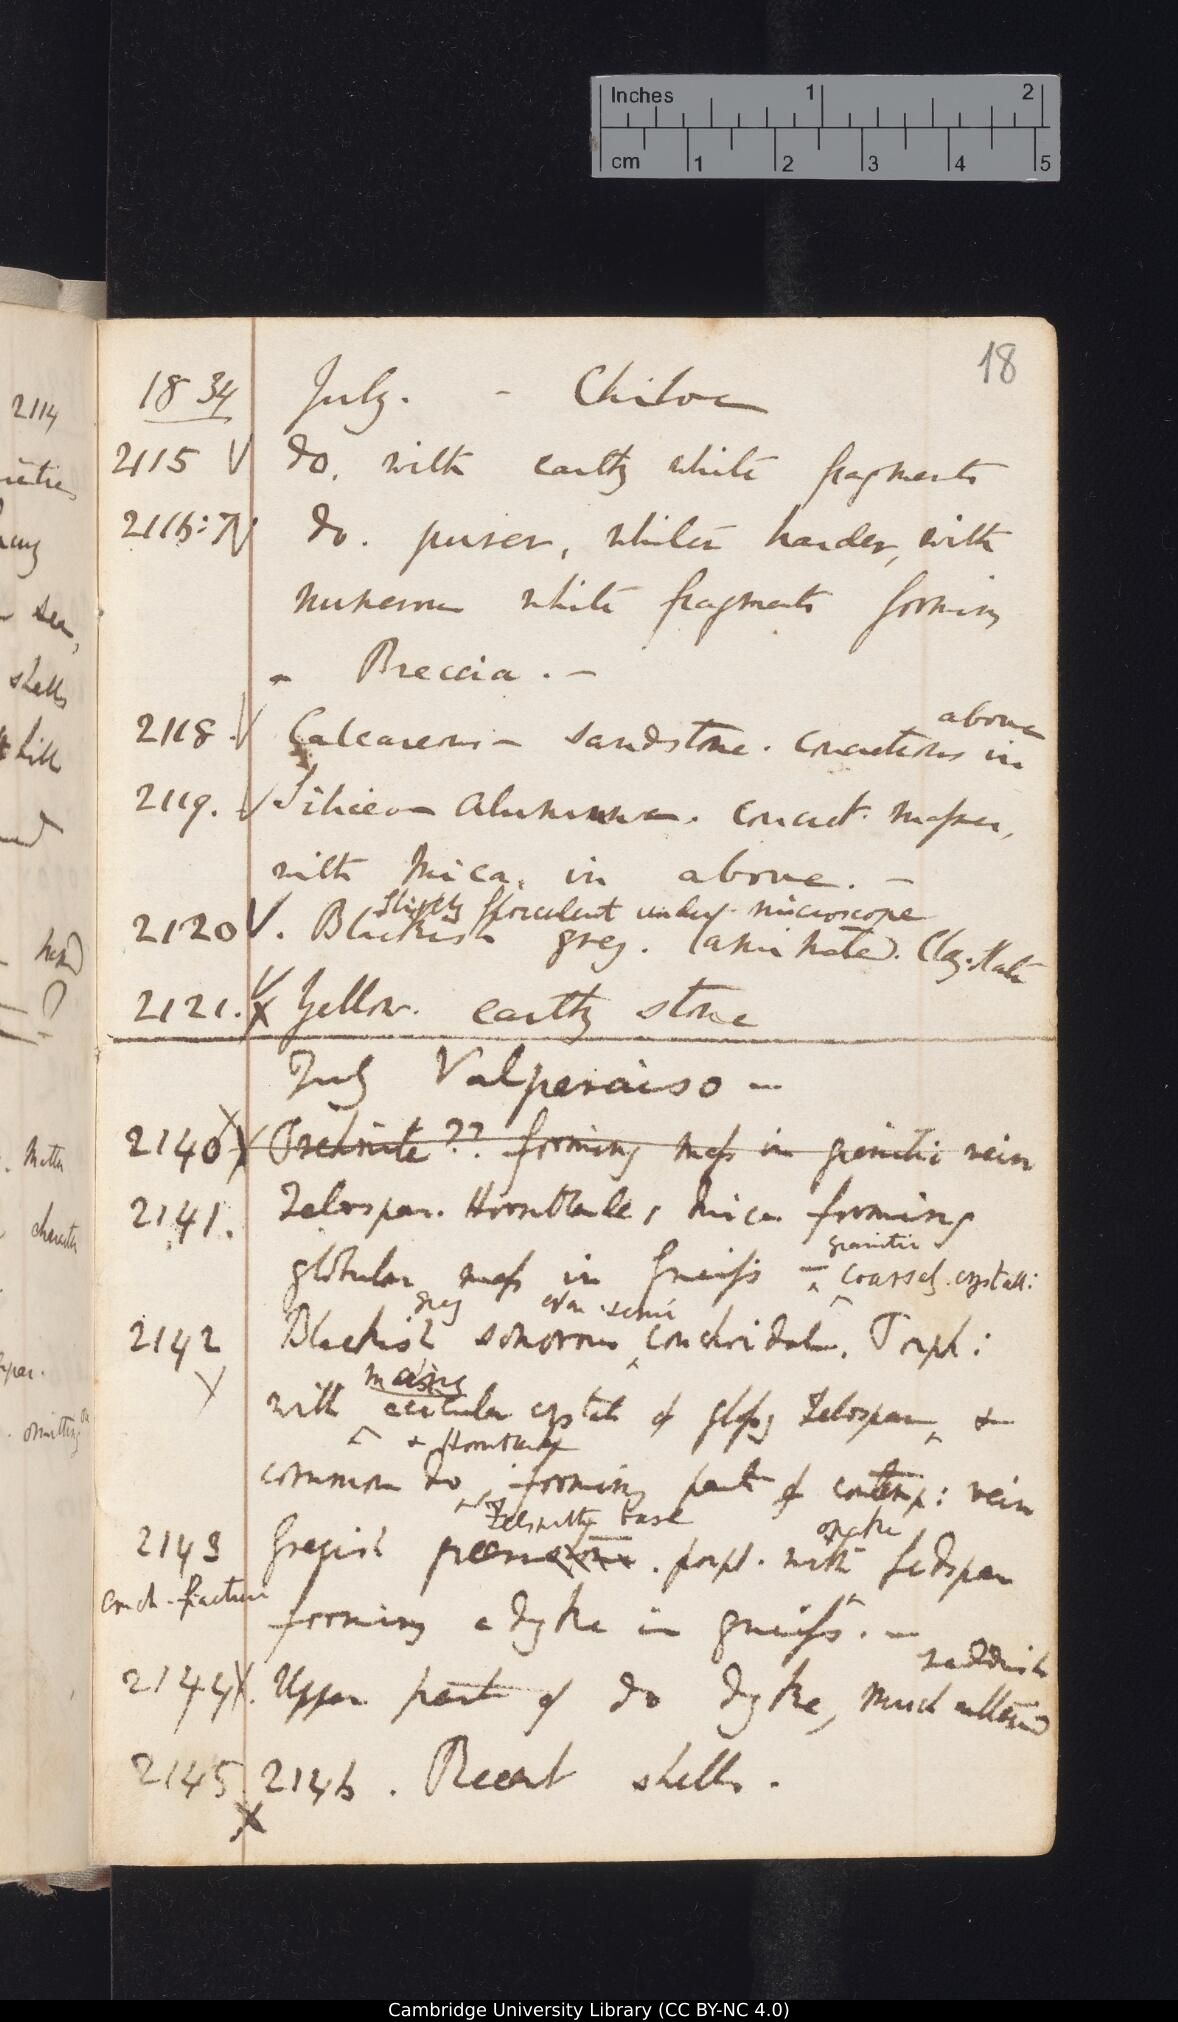 Inches 1 2
cm 1 2 3 4 5
18
1834 July. - Chiloe
2115 V do. with earthy white fragments
2116:7 V do. purer, whiter harder, with
numerous white fragments forming
a Breccia. -
above
2118. V Calcareous sandstone. concretions in
2119. V Siliceo- Aluminous. concret. masses,
with Mica. in above. -
slightly flocculent under microscope
2120 V. Blackish grey. laminated. Clay-Slate
2121. X Yellow. earthy stone
July Valparaiso -
2140 X Prehnite?? forming mass in granitic vein
2141. Felspar. Hornblende, Mica forming
granitic
globular mass in Gneiss - coarsely crystall:
grey semi
2142 Blackish sonorous conchoidal. Porph:
many
X with acicular crystals of glassy Felspar, &
& Hornblende
common do forming part of contemp: vein
Felspathic base opake
2143 Greyish greenstone. porph. with feldspar
conch-fracture
forming a dyke in gneiss. -
reddish
2144 X. Upper part of do dyke, much altered
2145 2146. Recent shells.
X
2114
sea,
shells
hill
hard
?
Matter
character
omitting
Cambridge University Library (CC BY-NC 4.0)